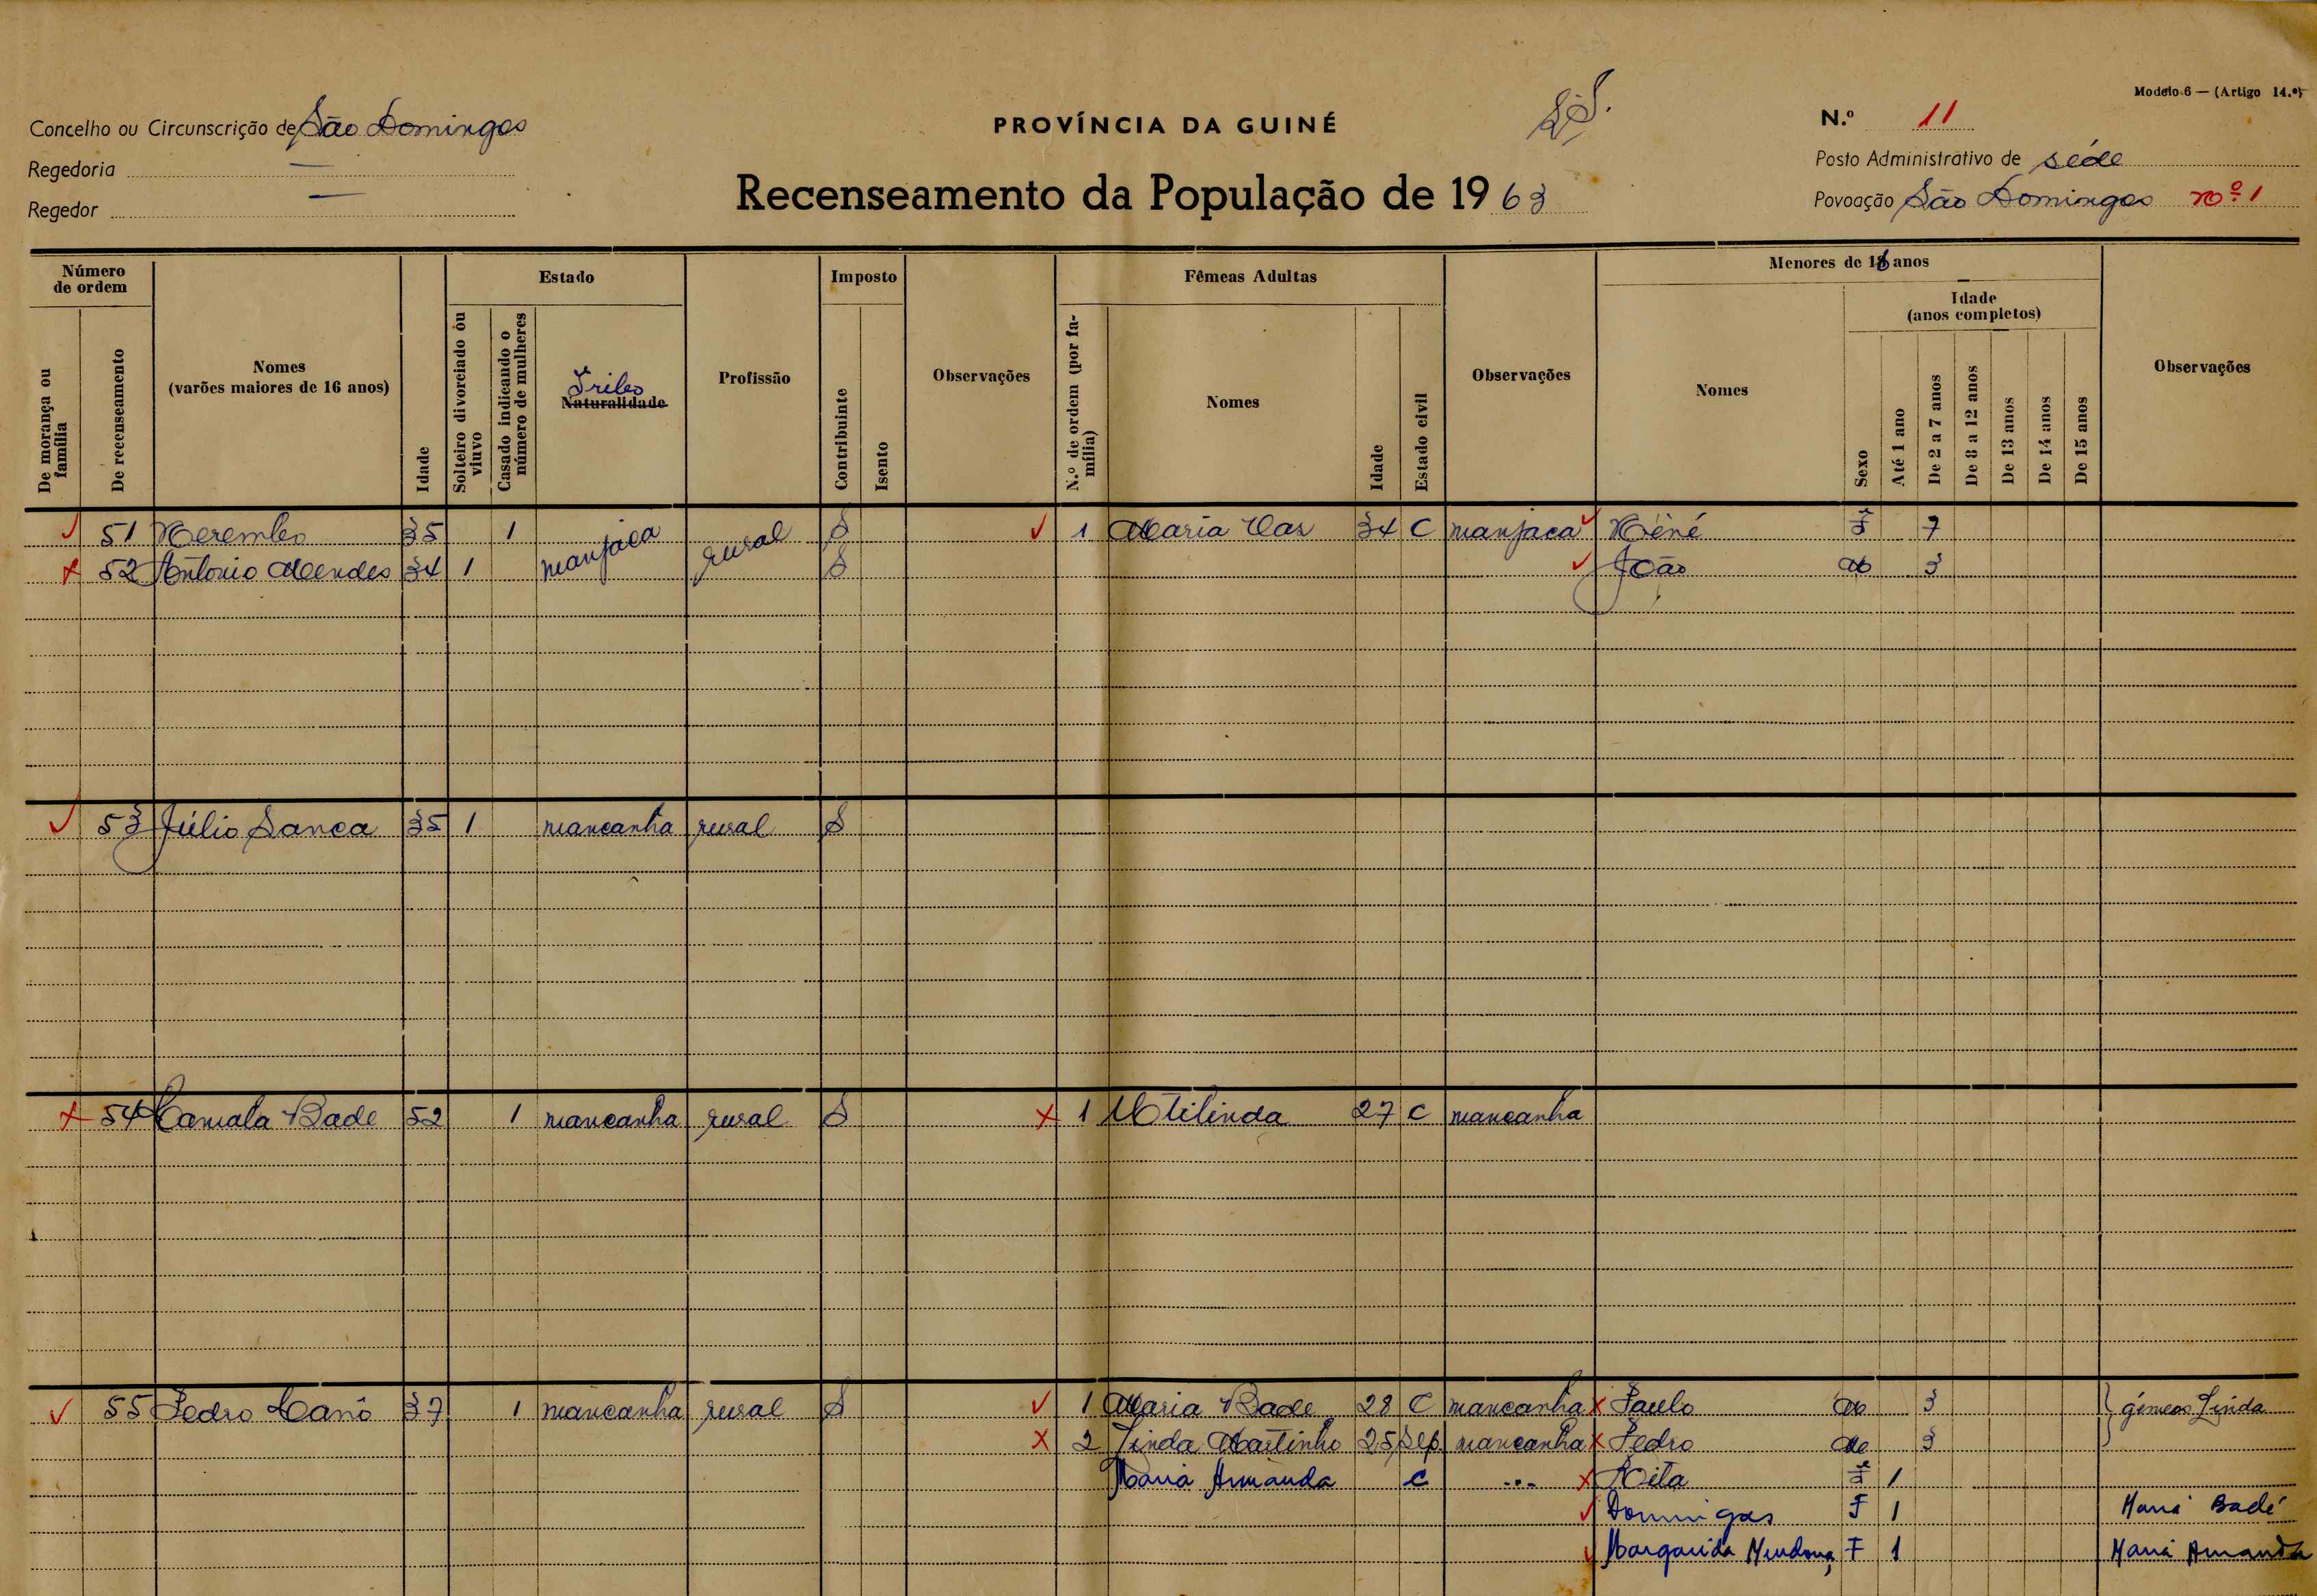 Modelo 6 — (Artigo 14.º)
Concelho ou Circunscrição de São Domingos
PROVÍNCIA DA GUINÉ
N.º 11
Regedoria —
Posto Administrativo de séde
Regedor —
Recenseamento da População de 1963
Povoação São Domingos nº 1
Número de ordem
Estado
Imposto
Fêmeas Adultas
Menores de 18 anos
Idade
(anos completos)
De morança ou família
De recenseamento
Nomes
(varões maiores de 16 anos)
Idade
Solteiro divorciado ou viuvo
Casado indicando o número de mulheres
Tribo
Naturalidade
Profissão
Contribuinte
Isento
Observações
N.º de ordem (por família)
Nomes
Idade
Estado civil
Observações
Nomes
Sexo
Até 1 ano
De 2 a 7 anos
De 8 a 12 anos
De 13 anos
De 14 anos
De 15 anos
Observações
51 35 1 manjaca rural S 1 Maria Vaz 34 C manjaca F 7
52 António Mendes 34 1 S João M 3
53 Júlio Sanca 35 1 mancanha rural S
54 Camala Bade 52 1 mancanha rural S 1 27 C mancanha
55 Pedro Canô 37 1 mancanha rural S 1 Maria Bade 28 C mancanha Paulo M 3 gémeos Linda
2 Linda Martinho 25 Sep. mancanha Pedro M 3
Maria Armanda C ... Rita F 1
Domingas F 1 Maria Badé
Margarida Mendonça F 1 Maria Armanda